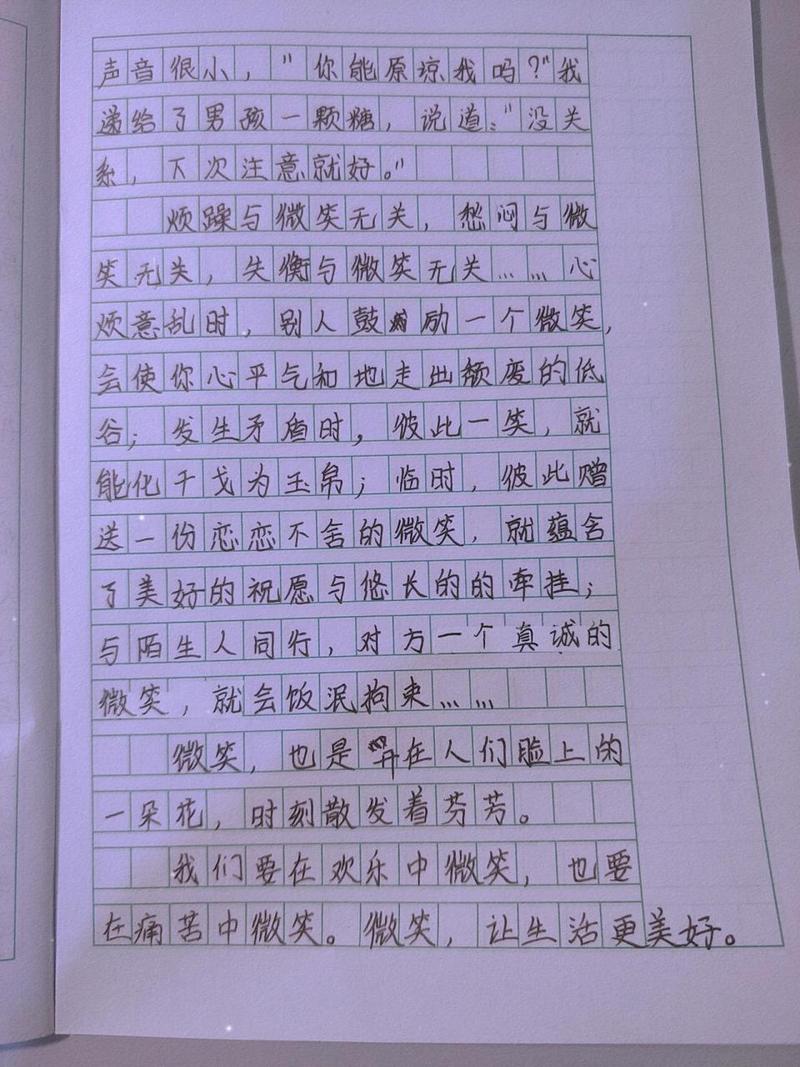 声音很小，"你能原谅我吗？"我
递给了男孩一颗糖，说道："没关
系，下次注意就好。"
烦躁与微笑无关，愁闷与微
笑无关，失衡与微笑无关……心
烦意乱时，别人鼓励一个微笑，
会使你心平气和地走出颓废的低
谷；发生矛盾时，彼此一笑，就
能化干戈为玉帛；临时，彼此赠
送一份恋恋不舍的微笑，就蕴含
了美好的祝愿与悠长的的牵挂；
与陌生人同行，对方一个真诚的
微笑，就会饭泯拘束……
微笑，也是开在人们脸上的
一朵花，时刻散发着芬芳。
我们要在欢乐中微笑，也要
在痛苦中微笑。微笑，让生活更美好。